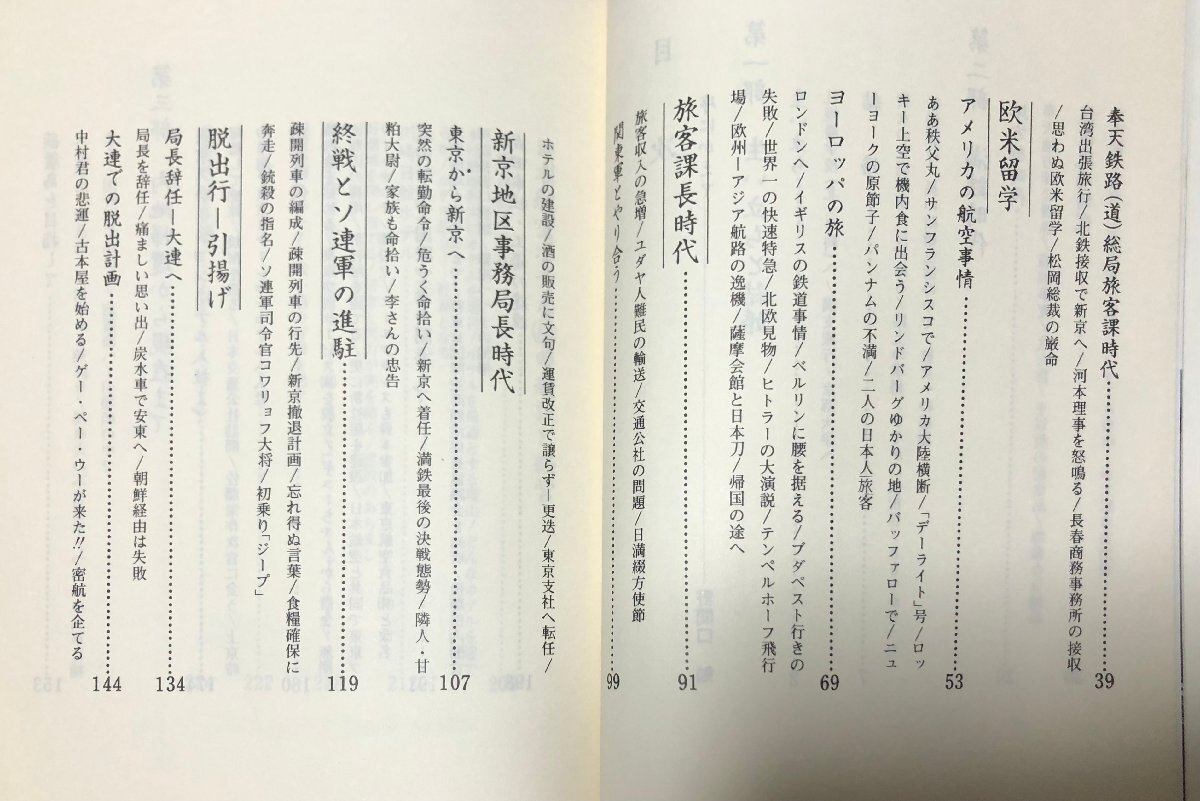 奉天鉄路(道)総局旅客課時代…………39
台湾出張旅行/北鉄接収で新京へ/河本理事を怒鳴る/長春商務事務所の接収
/思わぬ欧米留学/松岡総裁の厳命
欧米留学
アメリカの航空事情…………53
ああ秩父丸/サンフランシスコで/アメリカ大陸横断/「デーライト」号/ロッ
キー上空で機内食に出会う/リンドバーグゆかりの地/バッファローで/ニュ
ーヨークの原節子/パンナムの不満/二人の日本人旅客
ヨーロッパの旅…………69
ロンドンへ/イギリスの鉄道事情/ベルリンに腰を据える/ブダペスト行きの
失敗/世界一の快速特急/北欧見物/ヒトラーの大演説/テンペルホーフ飛行
場/欧州―アジア航路の逸機/薩摩会館と日本刀/帰国の途へ
旅客課長時代…………91
旅客収入の急増/ユダヤ人難民の輸送/交通公社の問題/日満綴方使節
関東軍とやり合う…………99
ホテルの建設/酒の販売に文句/運賃改正で譲らず―更迭/東京支社へ転任/
新京地区事務局長時代
東京から新京へ…………107
突然の転勤命令/危うく命拾い/新京へ着任/満鉄最後の決戦態勢/隣人・甘
粕大尉/家族も命拾い/李さんの忠告
終戦とソ連軍の進駐…………119
疎開列車の編成/疎開列車の行先/新京撤退計画/忘れ得ぬ言葉/食糧確保に
奔走/銃殺の指名/ソ連軍司令官コワリョフ大将/初乗り「ジープ」
脱出行―引揚げ
局長辞任―大連へ…………134
局長を辞任/痛ましい思い出/炭水車で安東へ/朝鮮経由は失敗
大連での脱出計画…………144
中村君の悲運/古本屋を始める/ゲー・ペー・ウーが来た!!/密航を企てる